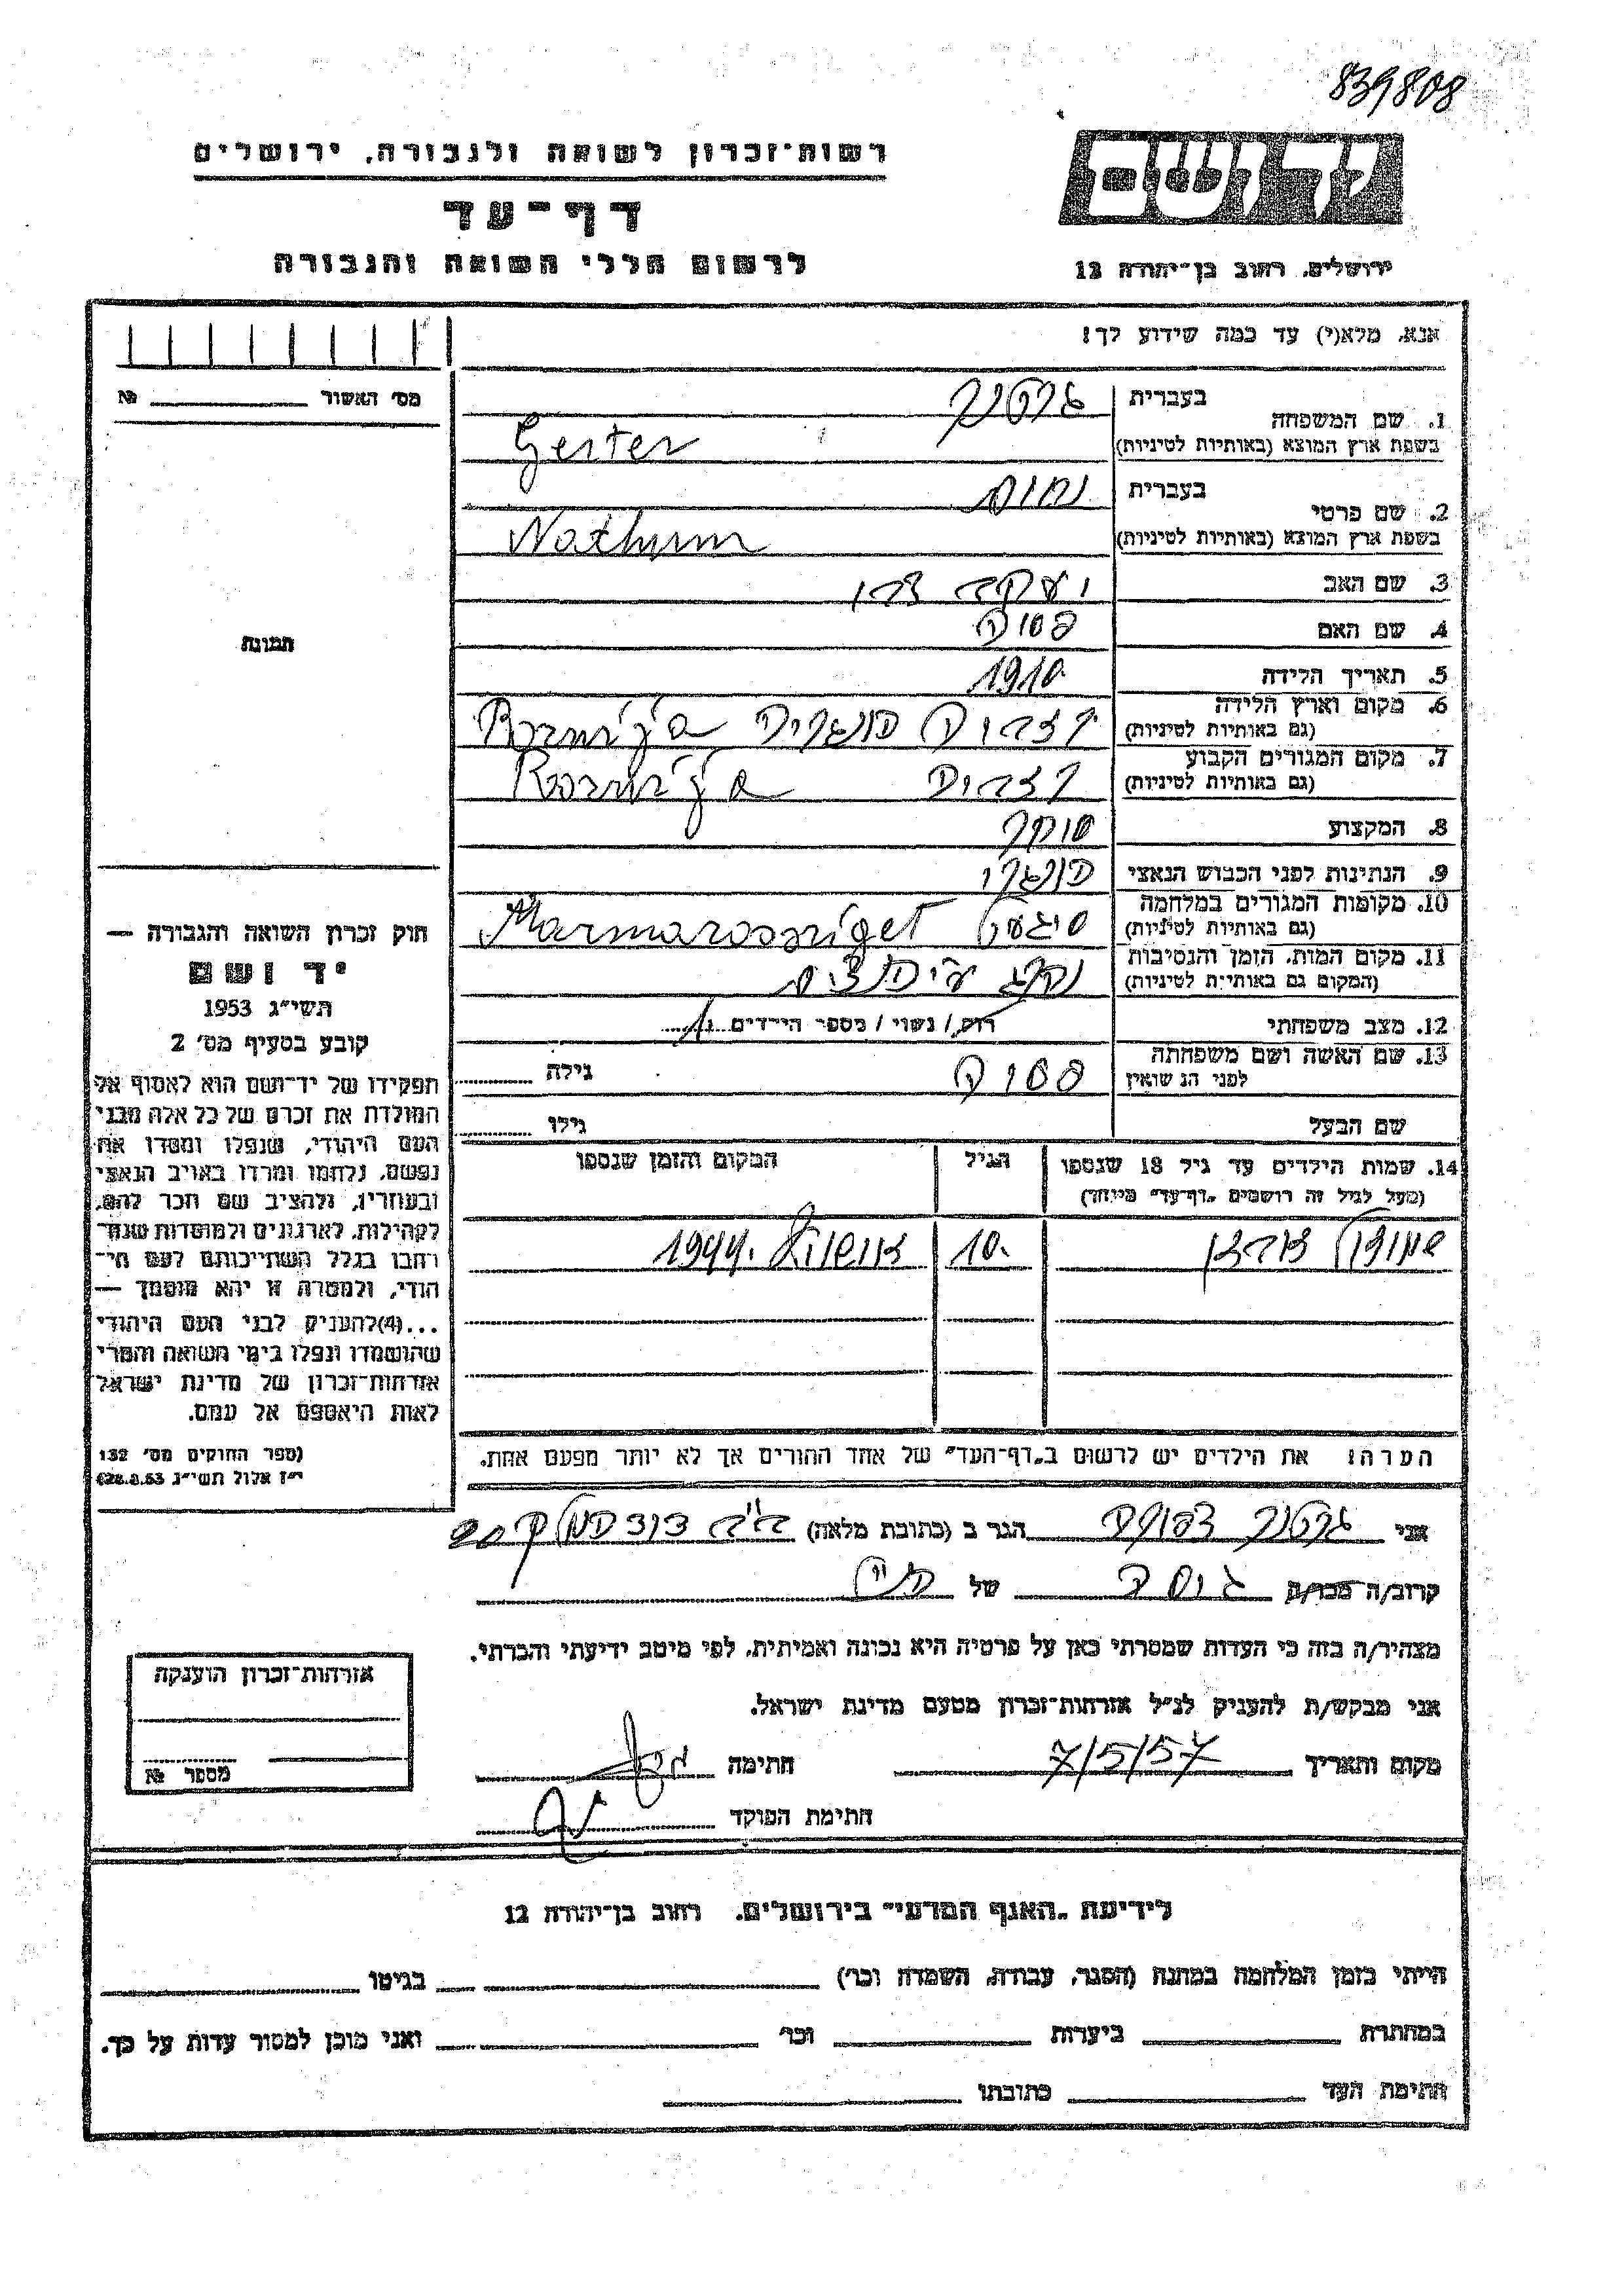 839808
רשות-זכרון לשואה ולגבורה, ירושלים
יד ושם
דף-עד
לרשום חללי השואה והגבורה
ירושלים, רחוב בן-יהודה 12
אנא, מלא(י) עד כמה שידוע לך!
מס׳ האשור № 
1. שם המשפחה
בעברית גרטנר
בשפת ארץ המוצא (באותיות לטיניות) Gerter
2. שם פרטי
בעברית נחום
בשפת ארץ המוצא (באותיות לטיניות) Nathum
3. שם האב יעקב
4. שם האם
5. תאריך הלידה 1910.
6. מקום וארץ הלידה
(גם באותיות לטיניות) הונגריה
7. מקום המגורים הקבוע
(גם באותיות לטיניות)
8. המקצוע סוחר
9. הנתינות לפני הכבוש הנאצי הונגרי
10. מקומות המגורים במלחמה
(גם באותיות לטיניות) סיגעט Marmarossziget
11. מקום המות, הזמן והנסיבות
(המקום גם באותיות לטיניות)
12. מצב משפחתי רווק / נשוי / מספר הילדים 1
13. שם האשה ושם משפחתה
לפני הנשואין
גילה
שם הבעל גילו
14. שמות הילדים עד גיל 18 שנספו
(מעל לגיל זה רושמים „דף-עד” מיוחד)
הגיל
המקום והזמן שנספו
10. אושוויץ 1944.
הערה: את הילדים יש לרשום ב„דף-העד” של אחד ההורים אך לא יותר מפעם אחת.
תמונה
חוק זכרון השואה והגבורה —
יד ושם
תשי״ג 1953
קובע בסעיף מס׳ 2
תפקידו של יד-ושם הוא לאסוף אל
המולדת את זכרם של כל אלה מבני
העם היהודי, שנפלו ומסרו את
נפשם, נלחמו ומרדו באויב הנאצי
ובעוזריו, ולהציב שם וזכר להם,
לקהילות, לארגונים ולמוסדות שנח-
רבו בגלל השתייכותם לעם הי-
הודי, ולמטרה זו יהא מוסמך —
...(4)להעניק לבני העם היהודי
שהושמדו ונפלו בימי השואה והמרי
אזרחות-זכרון של מדינת ישראל
לאות היאספם אל עמם.
(ספר החוקים מס׳ 132
י״ז אלול תשי״ג 28.8.53)
אני גרטנר הגר ב (כתובת מלאה)
קרוב/ה מכר/ת של
מצהיר/ה בזה כי העדות שמסרתי כאן על פרטיה היא נכונה ואמיתית, לפי מיטב ידיעתי והכרתי.
אני מבקש/ת להעניק לנ״ל אזרחות-זכרון מטעם מדינת ישראל.
מקום ותאריך 7/5/57 חתימה
חתימת הפוקד
אזרחות-זכרון הוענקה
מספר №
לידיעת „האגף המדעי” בירושלים, רחוב בן-יהודה 12
הייתי בזמן המלחמה במחנה (הסגר, עבודה, השמדה וכו׳) בגיטו
במחתרת ביערות וכו׳ ואני מוכן למסור עדות על כך.
חתימת העד כתובתו